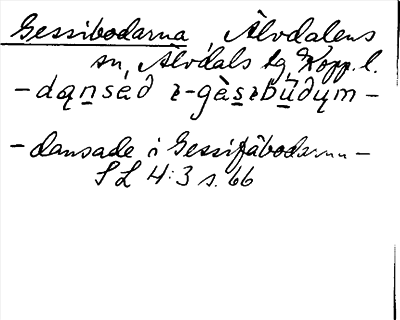 Gessibodarna, Älvdalens
sn, Älvdals tg, Kopp. l.
- dąn̲séd ɪ-gàs̲ɪbü̲ðųm -
- dansade i Gessifäbodarna -
SL 4:3 s. 66